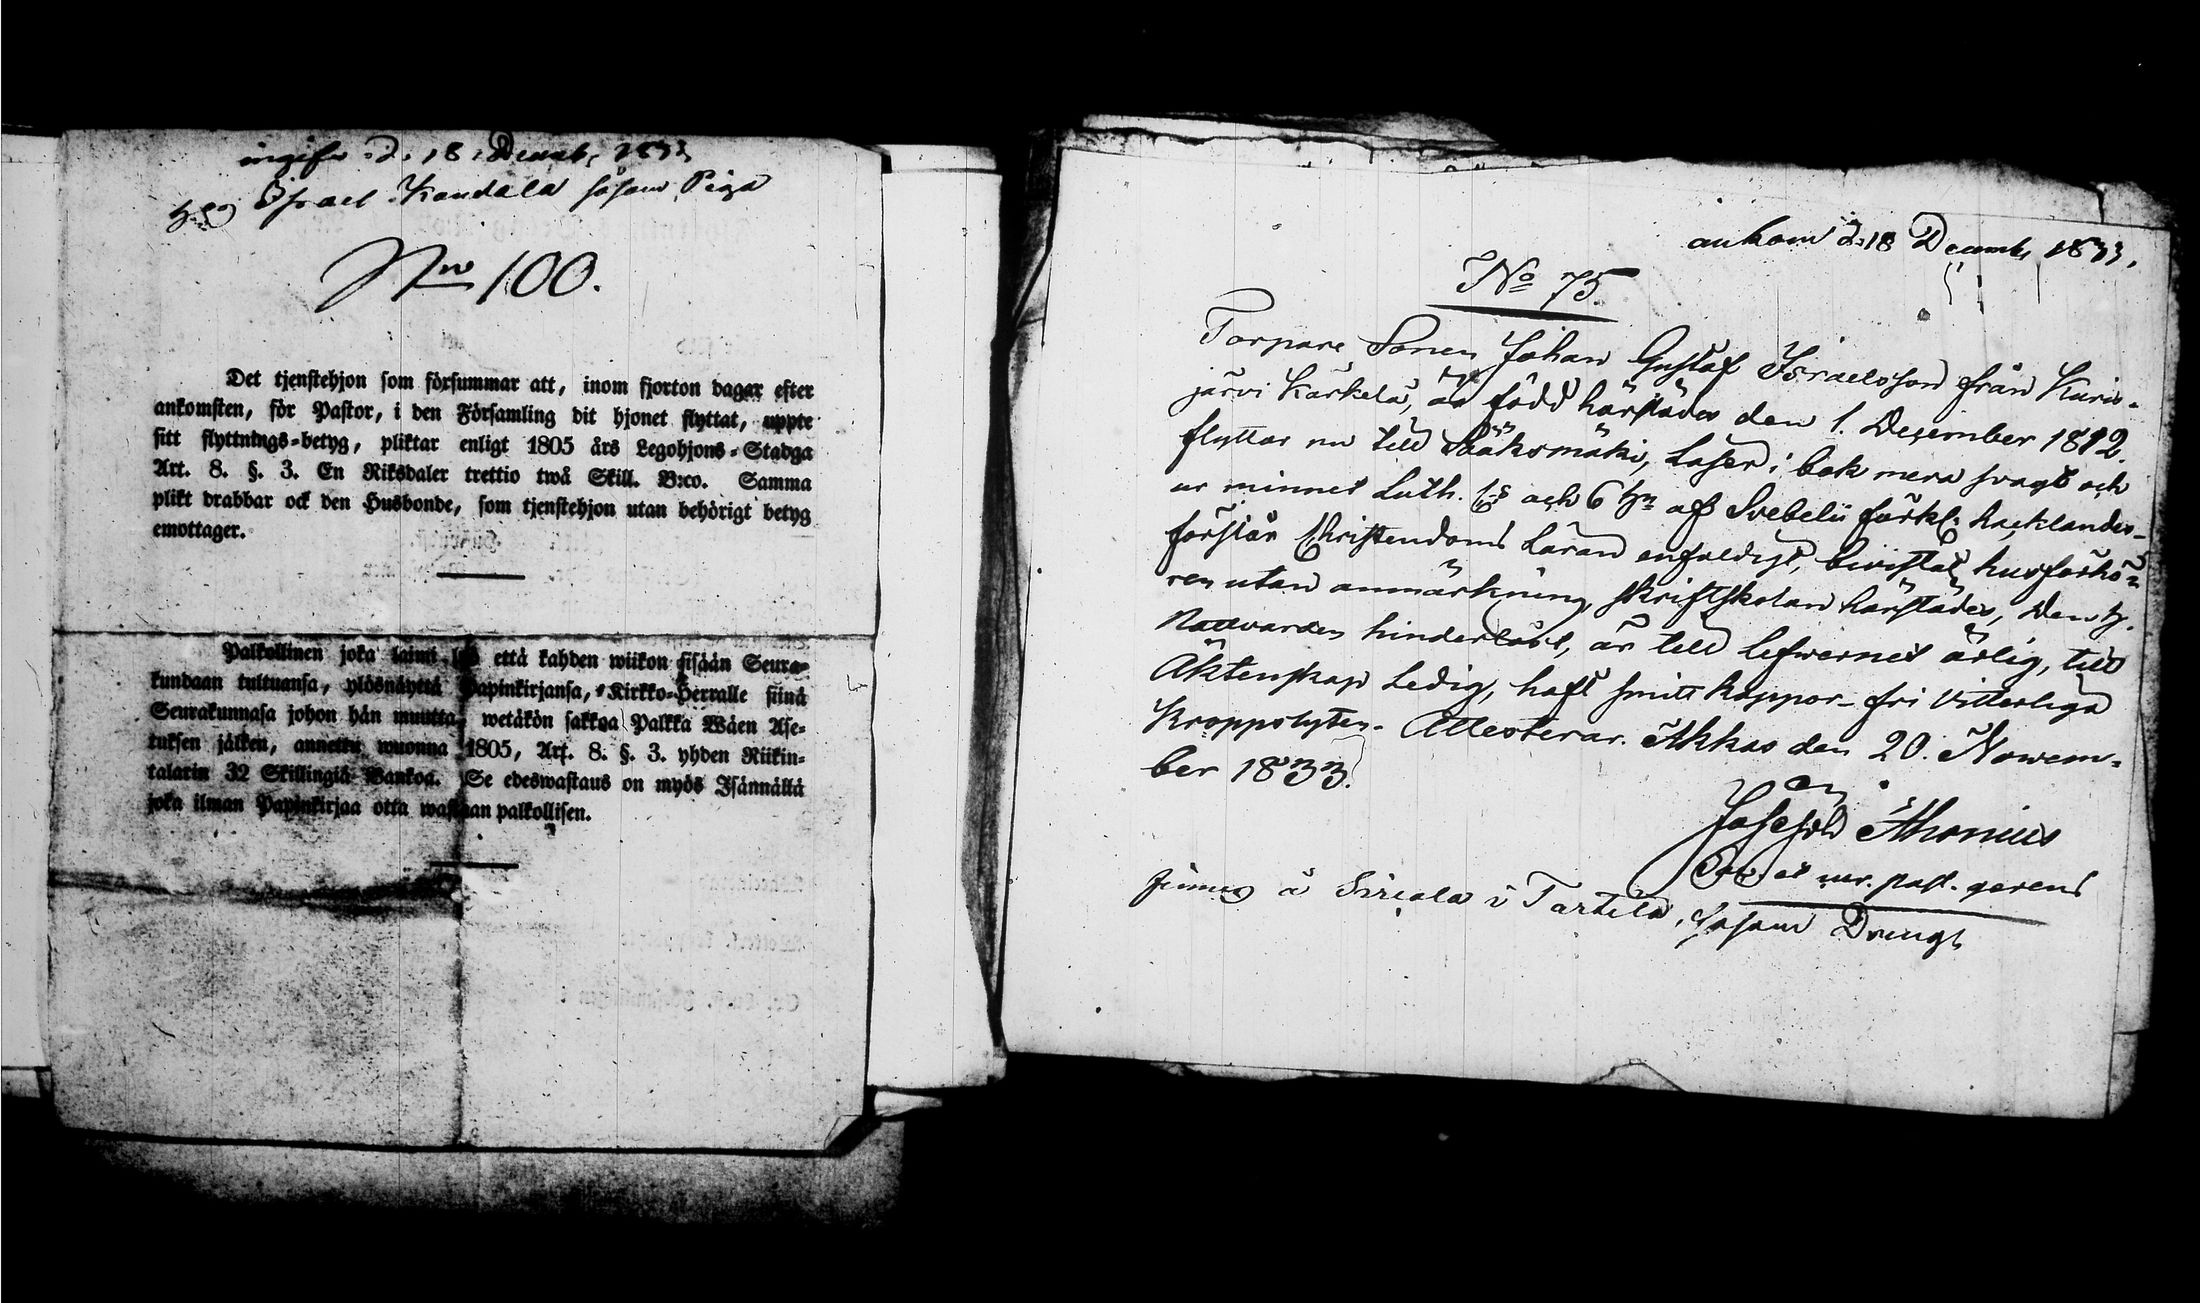 ingifv. d. 18 Decemb. 1833
hos Israel Kandala såsom Piga
Nro 100.
Det tjenstehjon som försummar att, inom fjorton dagar efter
ankomsten, för Pastor, i den Församling dit hjonet flyttat, uppte
sitt flyttnings-betyg, pliktar enligt 1805 års Legohjons-Stadga
Art. 8. §. 3. En Riksdaler trettio twå Skill. B:co. Samma
plikt drabbar ock den Husbonde, som tjenstehjon utan behörigt betyg
emottager.
Palkollinen joka laimi lyö että kahden wiikon sisään Seura-
kundaan tultuansa, ylösnäyttä Papinkirjansa, Kirkko-Herralle siinä
Seurakunnasa johon hän muutta, wetäkön sakkoa Palkka Wäen Ase-
tuksen jälken, annettu wuonna 1805, Art. 8. §. 3. yhden Riikin-
talarin 32 Skillingiä Bankoa. Se edeswastaus on myös Isännällä
joka ilman Papinkirjaa otta wastaan palkollisen.
ankom d. 18 Decemb. 1833.
No 75.
Torpare Sonen Johan Gustaf Israelsson från Kuris-
järvi Kärkelä, är född härstädes den 1. December 1812.
flyttar nu till Sääksmäki, Läser i bok mera svagt och
ur minnet Luth. Cs och 6 hn af Svebelii förkl. hacklandes
förstår Christendoms Läran enfaldigt, bevistat husförhö-
ren utan anmärkning, skriftskolan härstädes, Den h.
Nattvarden hinderlöst, är till lefvernet ärlig, till
Äktenskap Ledig, haft smittkoppor fri Vitterliga
Kroppslyten. Attesterar. Akkas den 20. Novem-
ber 1833.
Joseph Ahonius
Sac. et vic. past. gerens
finnes å Siriala i Tarttila, såsom Dreng